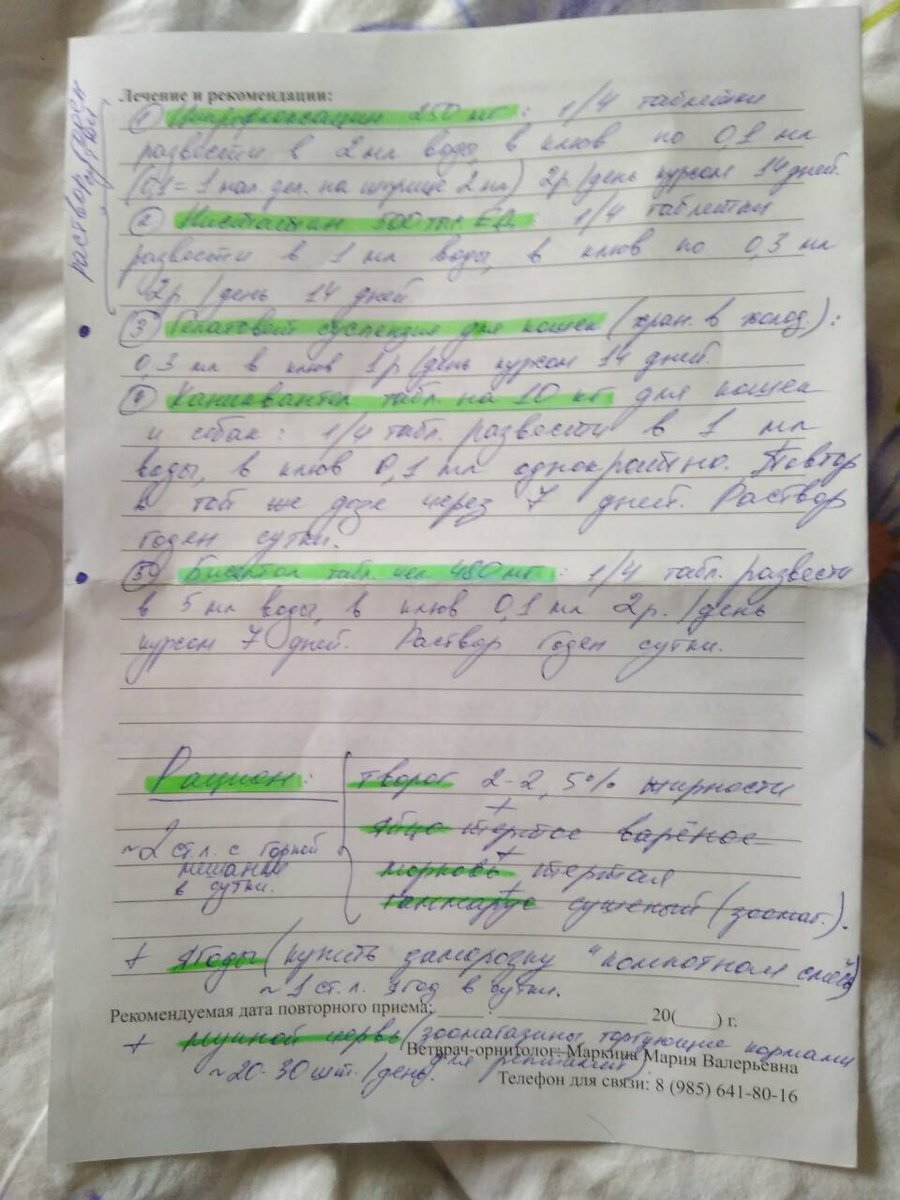 раствор годен сутки
Лечение и рекомендации:
① Ципрофлоксацин 250 мг: 1/4 таблетки
развести в 2 мл воды, в клюв по 0,1 мл
(0,1 = 1 мал. дел. на шприце 2 мл) 2р/день курсом 14 дней.
② Нистатин 500 тыс ЕД. 1/4 таблетки
развести в 1 мл воды, в клюв по 0,3 мл
2р./день 14 дней.
③ Гепатовет суспензия для кошек (хран. в холод.):
0,3 мл в клюв 1р/день курсом 14 дней.
④ Каниквантел табл. на 10 кг для кошек
и собак: 1/4 табл. развести в 1 мл
воды, в клюв 0,1 мл однократно. Повтор
в той же дозе через 7 дней. Раствор
годен сутки.
⑤ Бисептол табл. 480 мг: 1/4 табл. развести
в 5 мл воды, в клюв 0,1 мл 2р./день
курсом 7 дней. Раствор годен сутки.
Рацион: творог 2-2,5% жирности
+
яйцо тертое варёное
~2 ст.л. с горкой
мешанки
в сутки.
+
морковь тертая
+
гаммарус сушеный (зоомаг.).
+ ягоды (купить заморозку "компотная смесь")
~ 1 ст.л. ягод в сутки.
Рекомендуемая дата повторного приема: ____ . ________ 20(____) г.
+ мучной червь (зоомагазины торгующие кормами
для рептилий).
~20-30 шт./день.
Ветврач-орнитолог: Маркина Мария Валерьевна
Телефон для связи: 8 (985) 641-80-16